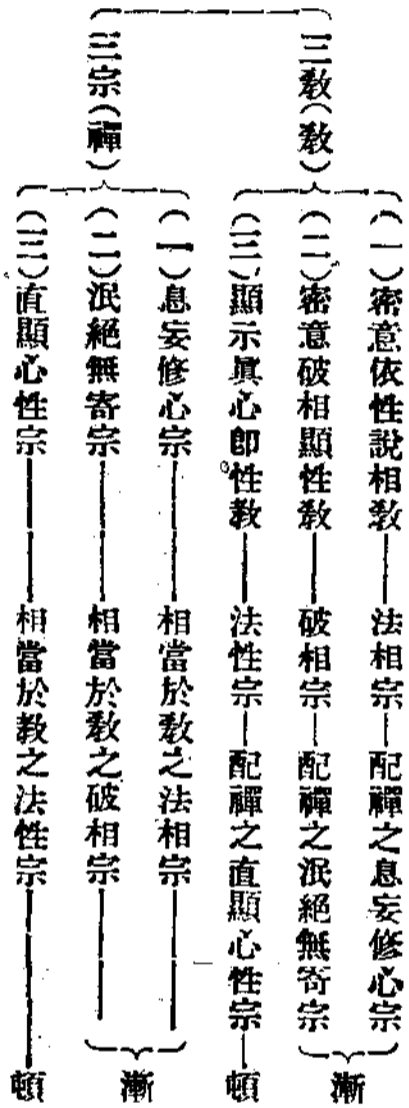 三教(教)
(一)密意依性說相教——法相宗—配禪之息妄修心宗
(二)密意破相顯性教——破相宗—配禪之泯絕無寄宗
漸
(三)顯示眞心卽性教——法性宗—配禪之直顯心性宗—頓
三宗(禪)
(一)息妄修心宗————相當於教之法相宗————
(二)泯絕無寄宗————相當於教之破相宗————
漸
(三)直顯心性宗————相當於教之法性宗————頓